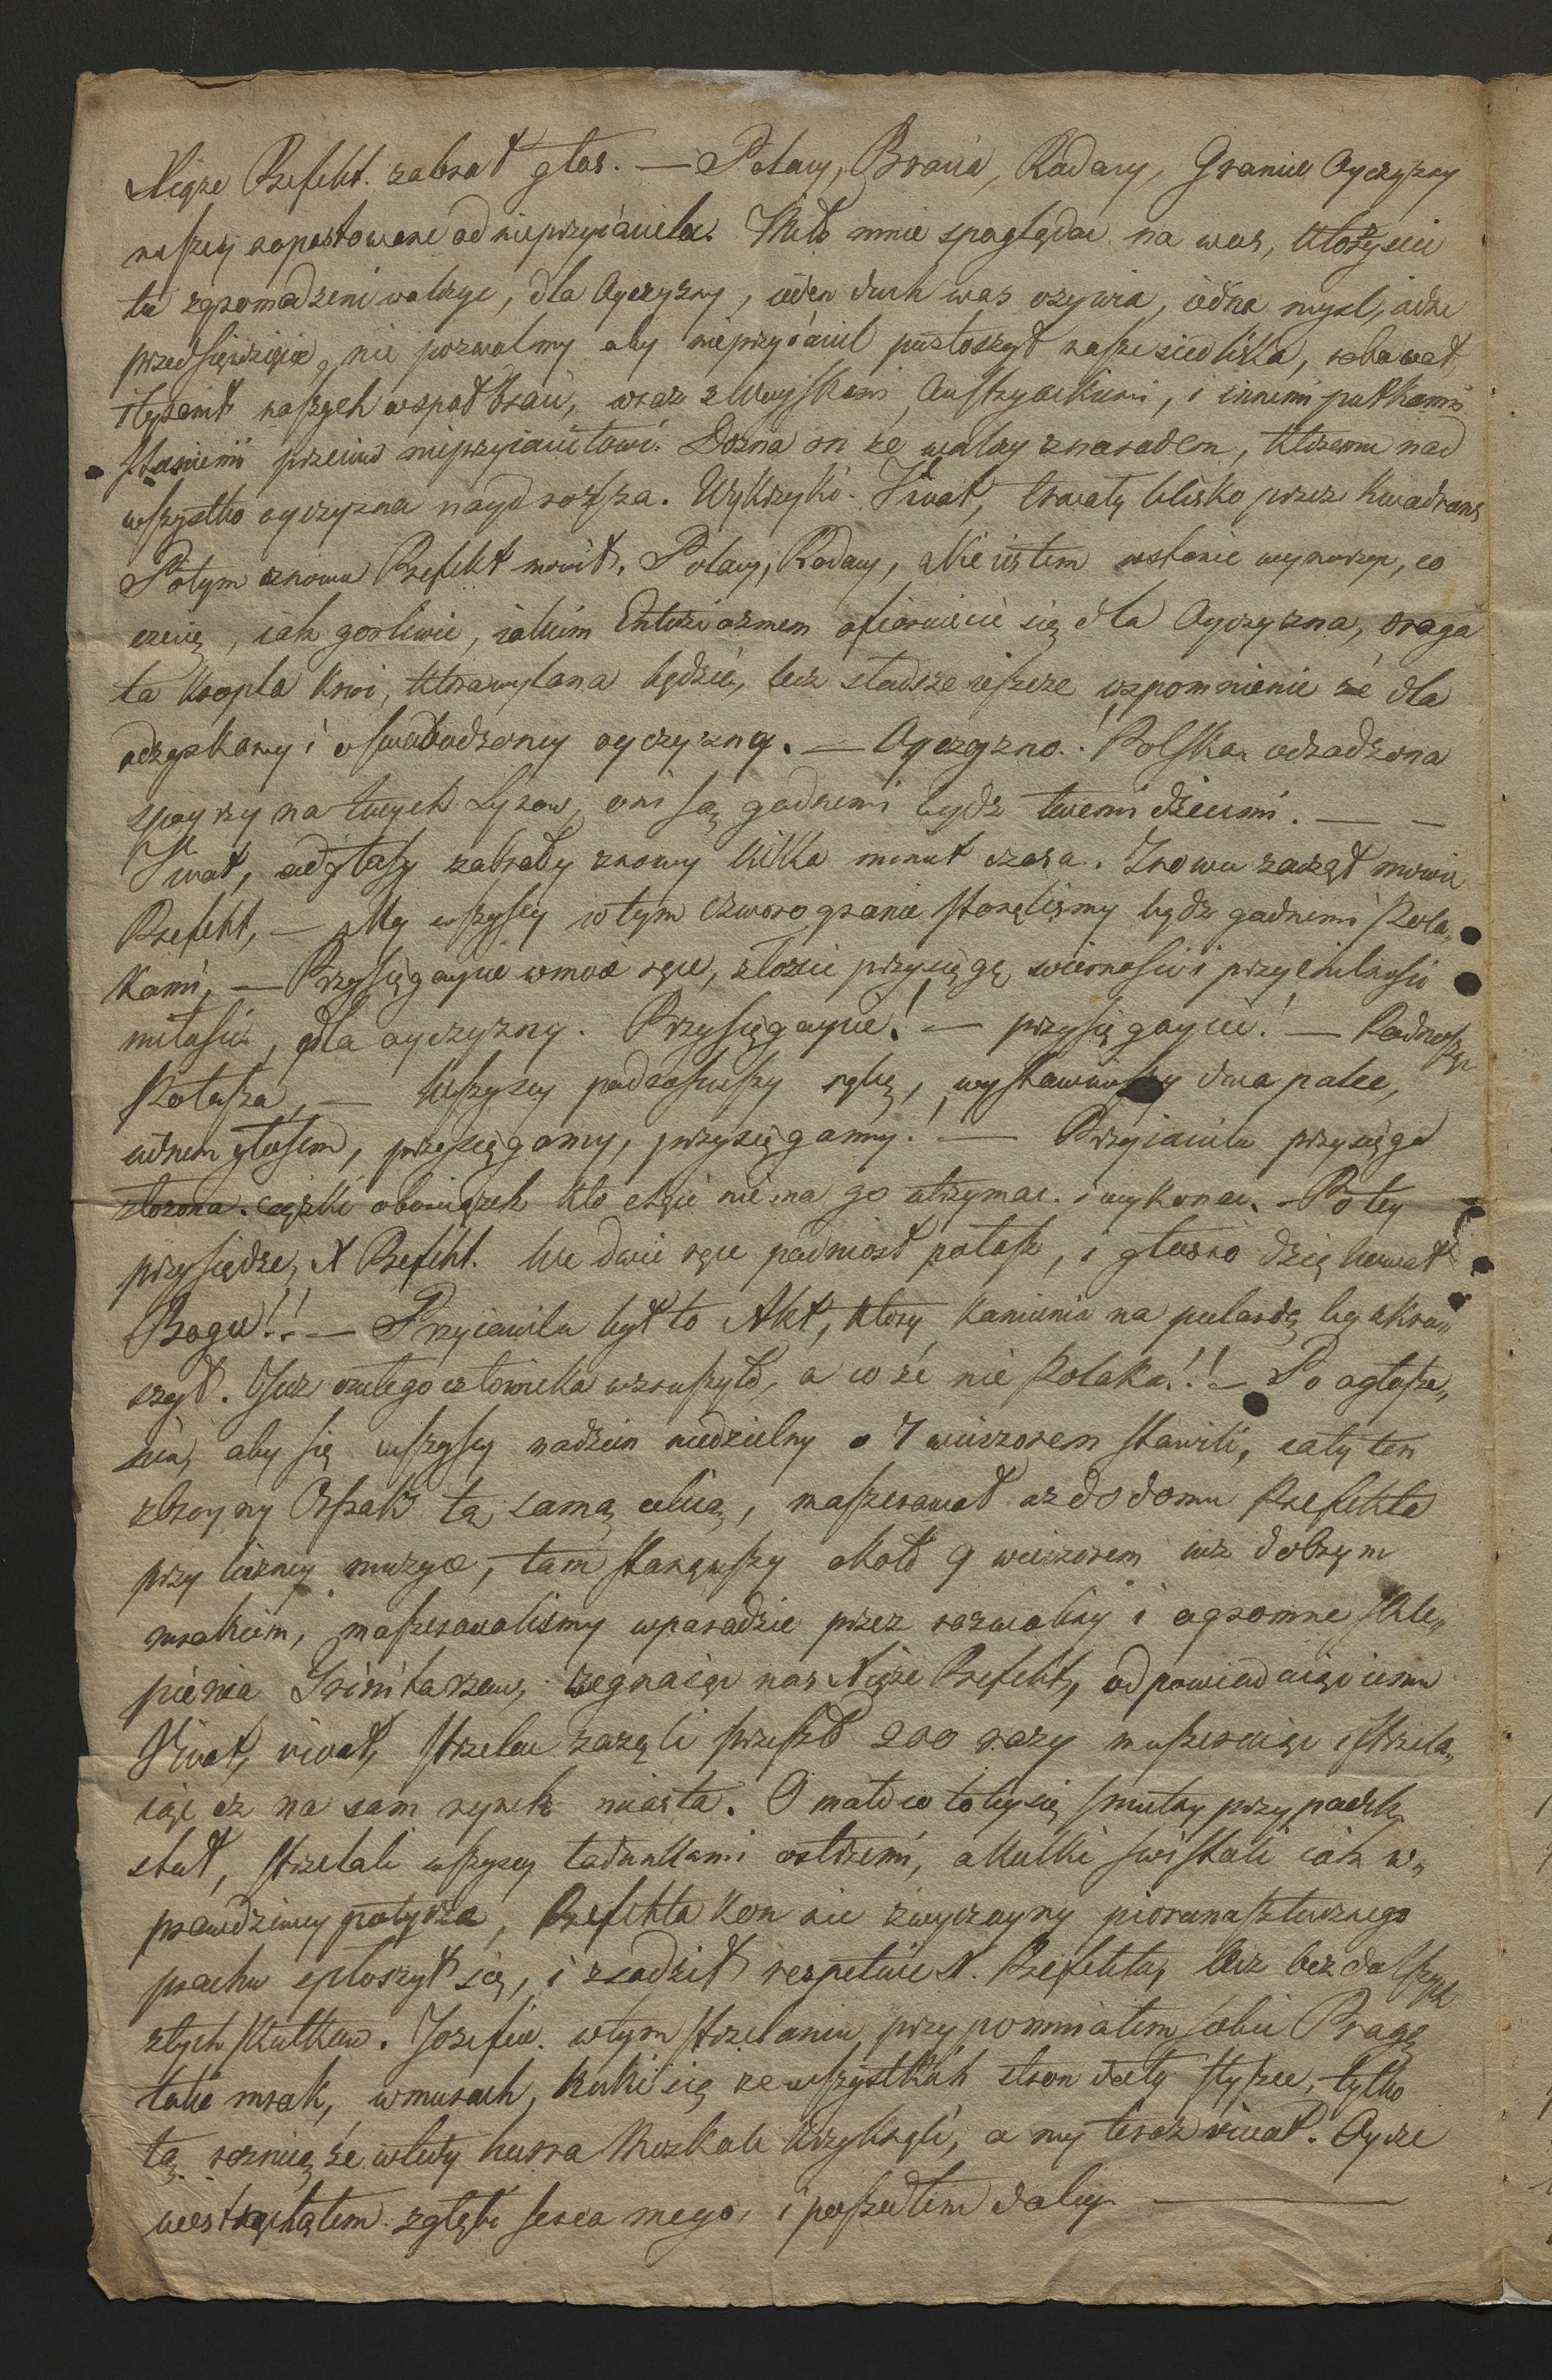 Xiąże Prefekt. zabrał głos. — Polacy, Bracia, Rodacy, Granice Oyczyzny
naszey napastowane od nieprzyiaciela. Miło mnie spoglądac na was, ktorzyscie
tu zgromadzeni walczyc, dla Oyczyzny, ieden duch was ozywia, iedna mysl, iedne
przedsięwzięcie, nie pozwolmy aby nieprzyiaciel pustoszył nasze siedliska, rabował
naszych wspołbraci, wraz z Woyskami Austryackiemi, i innemi pułkami
przeciw nieprzyiacielowi. Dozna on ze walczy z narodem, ktoremu nad
wszystko oyczyzna naydrozsza. Wykrzyki. Vivat, trwały blisko przez kwadrans
Potym znowu Prefekt mowił, Polacy, Rodacy, Nie iestem wstanie wynurzyc, co
czuię, iak gorliwie, iakim Entuziazmem ofiaruiecie się dla Oyczyzna, droga
ta kropla krwi, ktora wylana będzie, lecz słodsze ieszcze wspomnienie że dla
odzyskaney i oswobodzoney oyczyzny. — Oyczyzno! Polska odrodzona
spoyrzy na twych Synow, oni są godnemi bydz twemi dziecmi. — —
Vivat, odgłosy zabrały znowy kilka minut czasu. Znowu zaczął mowic
Prefekt, — My wszyscy w tym czworogranie stanęlismy bydz godnemi Pola„
kami, — Przysięgaycie w moie ręce, złozcie przysięgę, wiernosci i przychilnosci
miłosci, dla oyczyzny. Przysięgaycie! — przysięgaycie! — Podnosząc
Pałasza, — Wszyscy podnioswszy rękę, wystawiwszy dwa palce,
iednem głosem, przysięgamy, przysięgamy! — Przyiaciele przysięga
złozona. cięzki obowiązek kto chcie nie ma go utrzymac. i wykonac. — Po tey
przysiędze, X Prefekt. We dwie ręce podniosł pałasz, i głosno dziękował
Bogu!! — Przyiacielu był to Akt, ktory kamienia na
Juz całego człowieka wzruszyło, a coże nie Polaka!! — Po ogłosze„
niu, aby się wszyscy nadzien niedzielny o 7 wieczorem stawili, cały ten
zbroyny Orszak tą samą ulicą, maszerował az do domu Prefekta
przy liczney muzyce, tam stanąwszy około 9 wieczorem iuz dobrym
mrokiem, maszerowalismy w paradzie przez rozwaliny i ogromne skle„
pienia Trinitarzow, zegnaiąc nas Xiąże Prefekt, odpowiadaiąc iemu
Vivat, vivat, strzelac zaczęli przeszło 200 razy maszeruiąc i strzela„
iąc az na sam rynek miasta. O mało co toby się smutny przypadek
stał, strzelali wszyscy ładunkami ostremi, a kulki swistali iak w„
prawdziwey potyczce, Prefekta kon nie zwyczayny piorunasztucznego
prochu spłoszył się, i zsadził X. Prefekta, lecz bez dalszych
złych skutkow. Jozefie. w tym strzelaniu, przypomniałem sobie Pragę
takie mrok, w murach, kulki się ze wszystkich stron dały słyszec, tylko
tą roznicą że wtedy hurra Moskale krzyknęli, a my teraz vivat. Oycze
westchnąłem z głębi serca mego, i poszedłem daley —